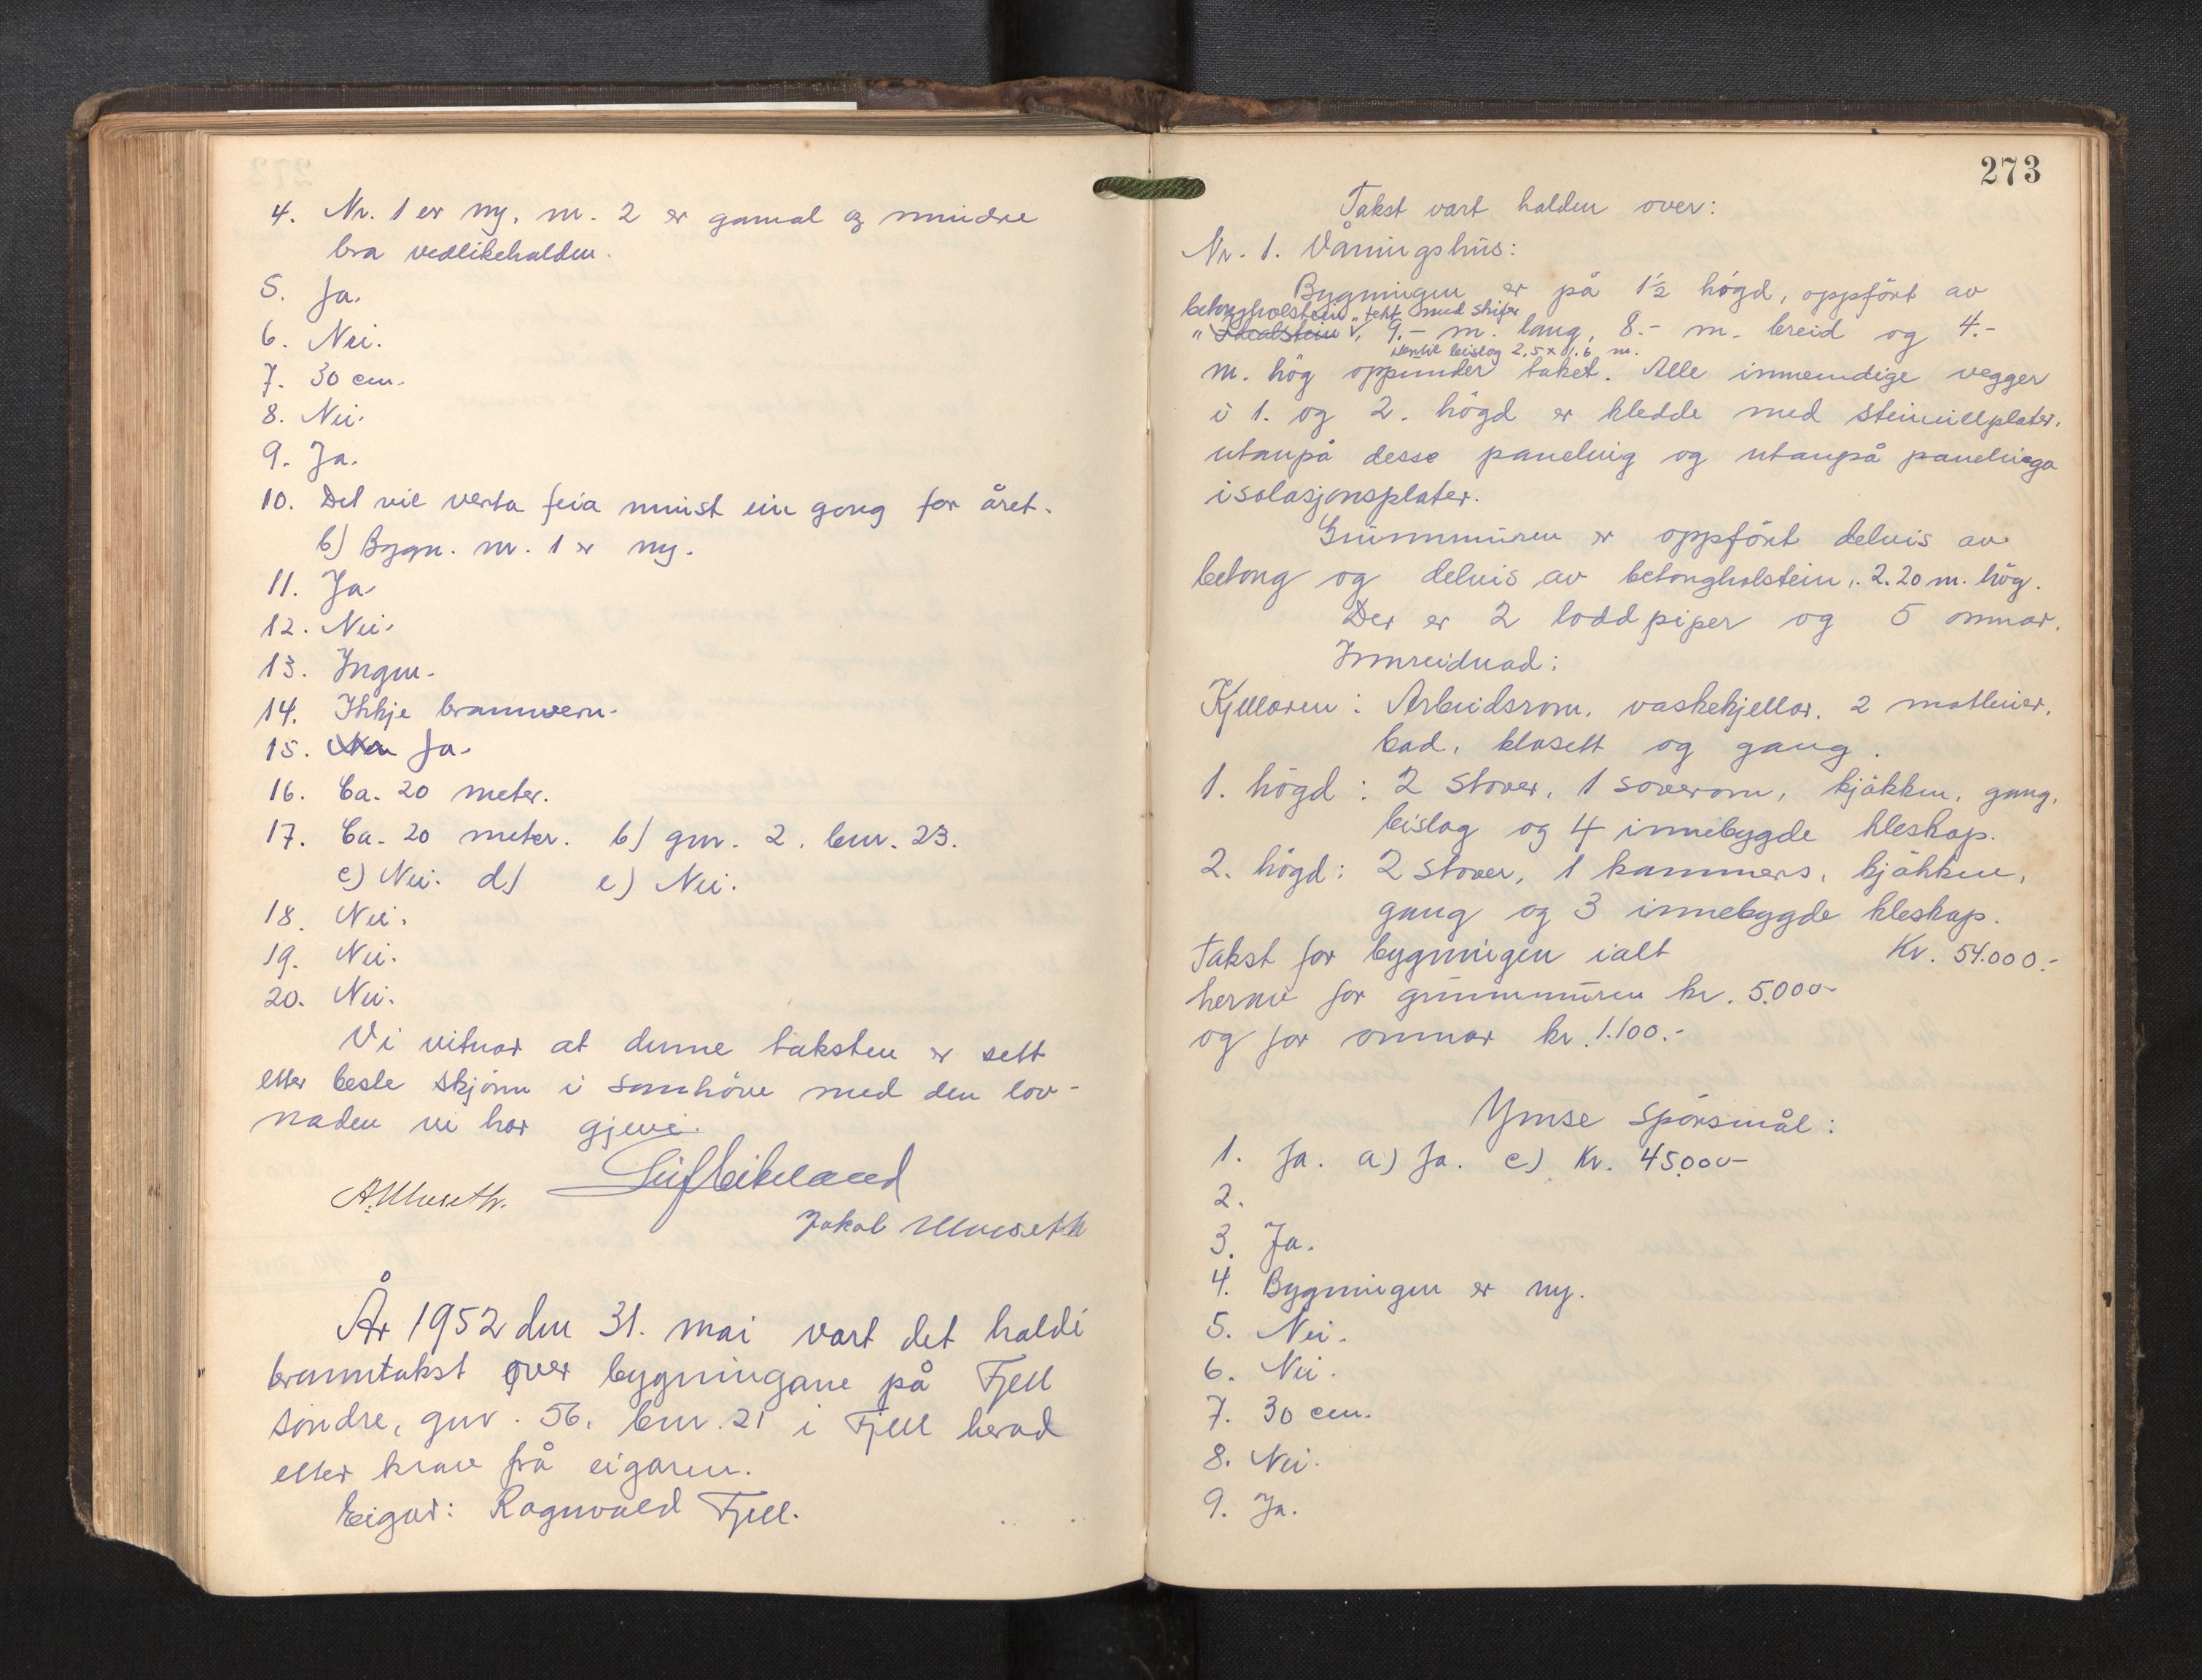 4. Nr. 1 er ny, nr. 2 er gamal og mindre
bra vedlikehalden.
5. Ja.
6. Nei.
7. 30 cm.
8. Nei.
9. Ja.
10. Det vil verta feia minst ein gong for året.
b) Bygn. nr. 1 er ny.
11. Ja
12. Nei.
13. Ingen.
14. Ikkje brannvern.
15. Ja.
16. Ca. 20 meter.
17. Ca. 20 meter. b) gnr. 2. bnr. 23.
c) Nei. d) e) Nei.
18. Nei.
19. Nei.
20. Nei.
Vi vitnar at denne taksten er sett
etter beste skjönn i samhöve med den lov-
naden vi har gjeve.
Jakob
År 1952 den 31. mai vart det haldi
branntakst over bygningane på Fjell
söndre, gnr. 56, bnr. 21 i Fjell herad
etter krav frå eigaren.
Eigar: Ragnvald Fjell.
273
Takst vart halden over:
Nr. 1. Våningshus:
Bygningen er på 1½ högd, oppfört av
betongholstein, tekt med skifer
9.- m. lang, 8.- m. breid og 4.-
bislag 2.5 x 1.6 m.
m. hög oppunder taket. Alle innvendige vegger
i 1. og 2. högd er kledde med steinullplater,
utanpå desse paneling og utanpå panelinga
isolasjonsplater.
Grunnmuren er oppfört delvis av
betong og delvis av betongholstein, 2.20 m. hög.
Der er 2 loddpiper og 5 omnar.
Innreidnad:
Kjellaren: Arbeidsrom, vaskekjellar, 2 matbuer,
bad, klosett og gang.
1. högd: 2 stover, 1 soverom, kjökken, gang,
bislag og 4 innebygde kleskap.
2. högd: 2 stover, 1 kammers, kjökken,
gang og 3 innebygde kleskap.
Takst for bygningen ialt Kr. 54.000.-
herav for grunnmuren kr. 5.000-
og for omnar kr. 1.100.-
Ymse spörsmål:
1. Ja. a) Ja. c) Kr. 45000-
2.
3. Ja.
4. Bygningen er ny.
5. Nei.
6. Nei.
7. 30 cm.
8. Nei.
9. Ja.